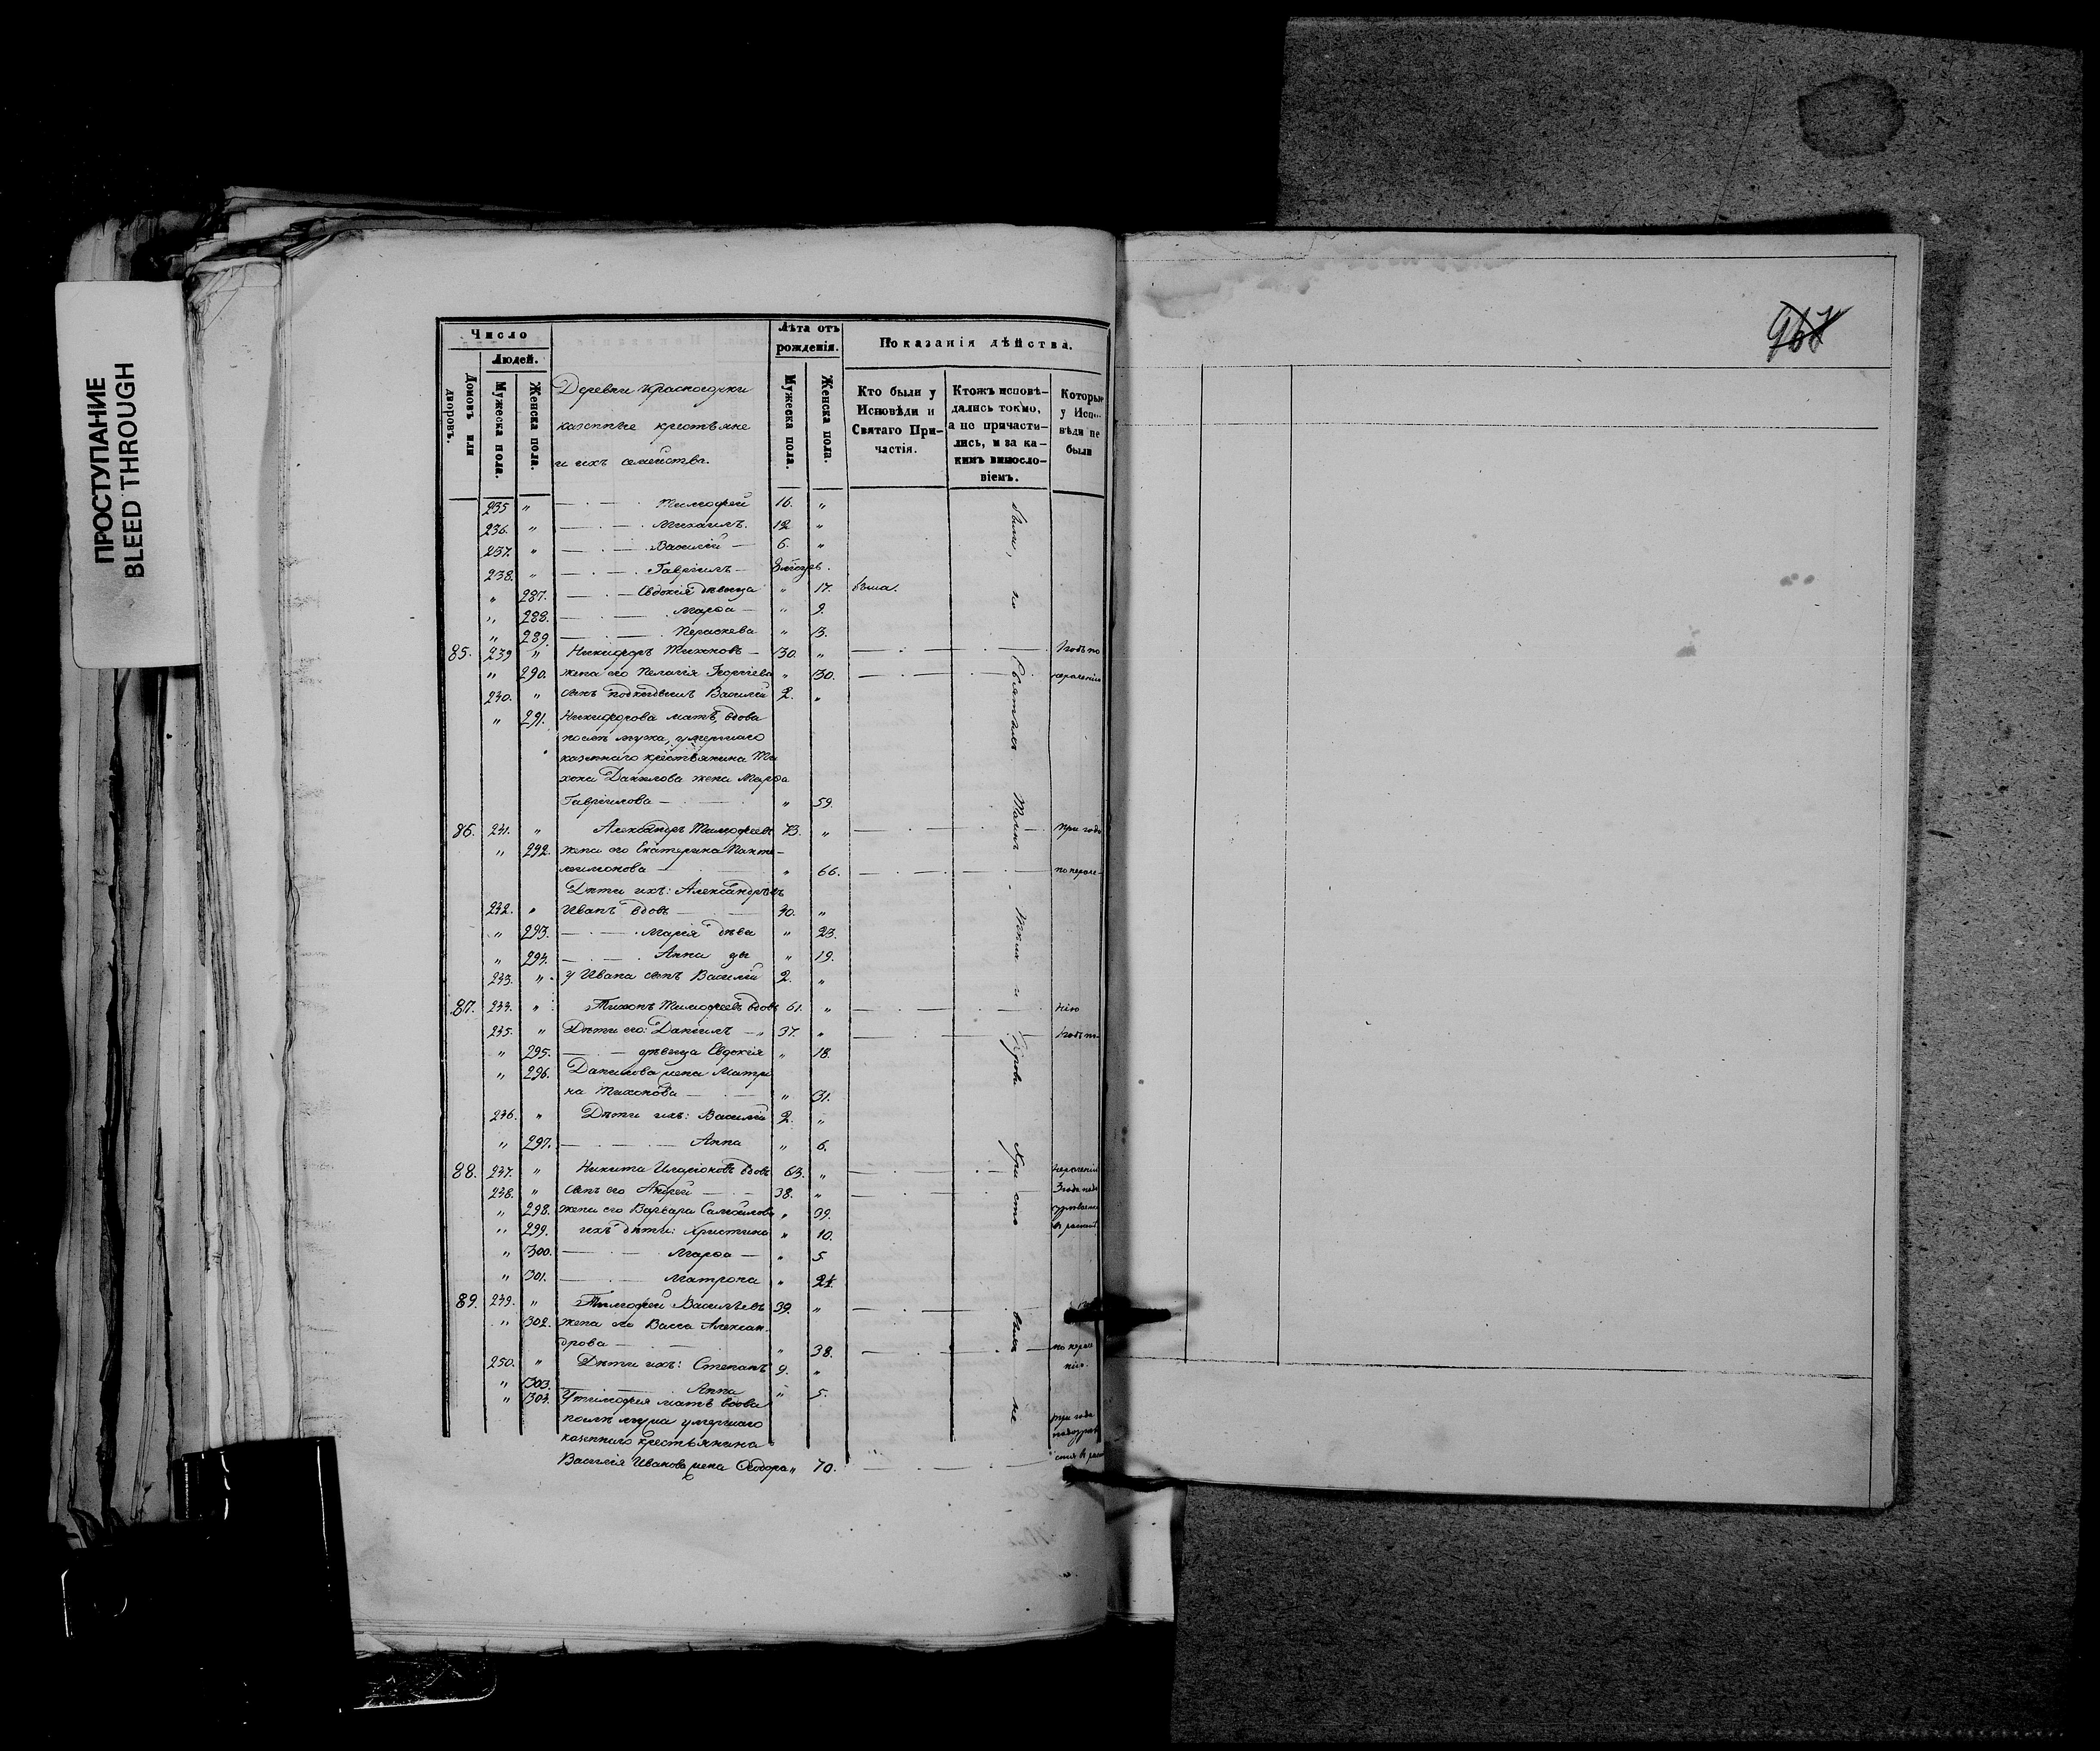 ПРОСТУПАНИЕ
BLEED THROUGH
Число
Людей.
Домовъ или дворовъ.
Мужеска пола.
Женска пола.
Деревни Красногорки
казенные крестьяне
и ихъ семейства.
Лѣта отъ рожденія.
Мужеска пола.
Женска пола.
Показанія дѣйства.
Кто были у Исповѣди и Святаго Причастія.
Ктожъ исповѣдались токмо, а не причастились, и за какимъ винословіемъ.
Которые у Исповѣди не были
235 " Тимофей 16. "
236. " Михаилъ. 12 "
237. " Василій 6. "
238. " Гавріилъ
" 287. Евдокія дѣвица " 17. была.
" 288. Марѳа " 9.
" 289. Параскева " 13.
85. 239 " Никифоръ Тихоновъ 30. "
" 290. жена его Пелагія Георгіева " 30.
240. " Василій 2. "
" 291. Никифорова мать, вдова
послѣ мужа, умершаго
казеннаго крестьянина Ти
хона Данилова жена Марѳа
Гавріилова " 59.
86. 241. " Александръ Тимофеевъ 73. " три года
" 292. жена его Екатерина Панте-
леимонова " 66.
Дѣти ихъ:
242. " Иванъ вдовъ 40. "
" 293. Марія дѣва " 23.
" 294. Анна " 19.
243. " У Ивана сынъ Василій 2. "
87. 244. " Тихонъ Тимофеевъ вдовъ 61. " нію
245. " Дѣти его: Даніилъ 37. "
" 295. дѣвица Евдокія " 18.
" 296. Данилова жена Матре
на Тихонова " 31.
246. " Дѣти ихъ: Василій 2. "
" 297. Анна " 6.
88. 247. " Никита Иларіоновъ вдовъ 63. "
248. " Сынъ его Андрей 38. "
" 298. жена его Варвара Самойлова " 39.
" 299. ихъ дѣти: Христина " 10.
" 300. Марѳа " 5
" 301. Матрона "
89. 249. " Тимофей Васильевъ 39. "
" 302. жена его Васса Алексан-
дрова " 38.
250. " Дѣти ихъ: Степанъ 9. "
" 303. Анна " 5.
" 304. У Тимофея мать вдова
послѣ мужа умершаго
казеннаго крестьянина
Василія Иванова жена Ѳеодора " 70.